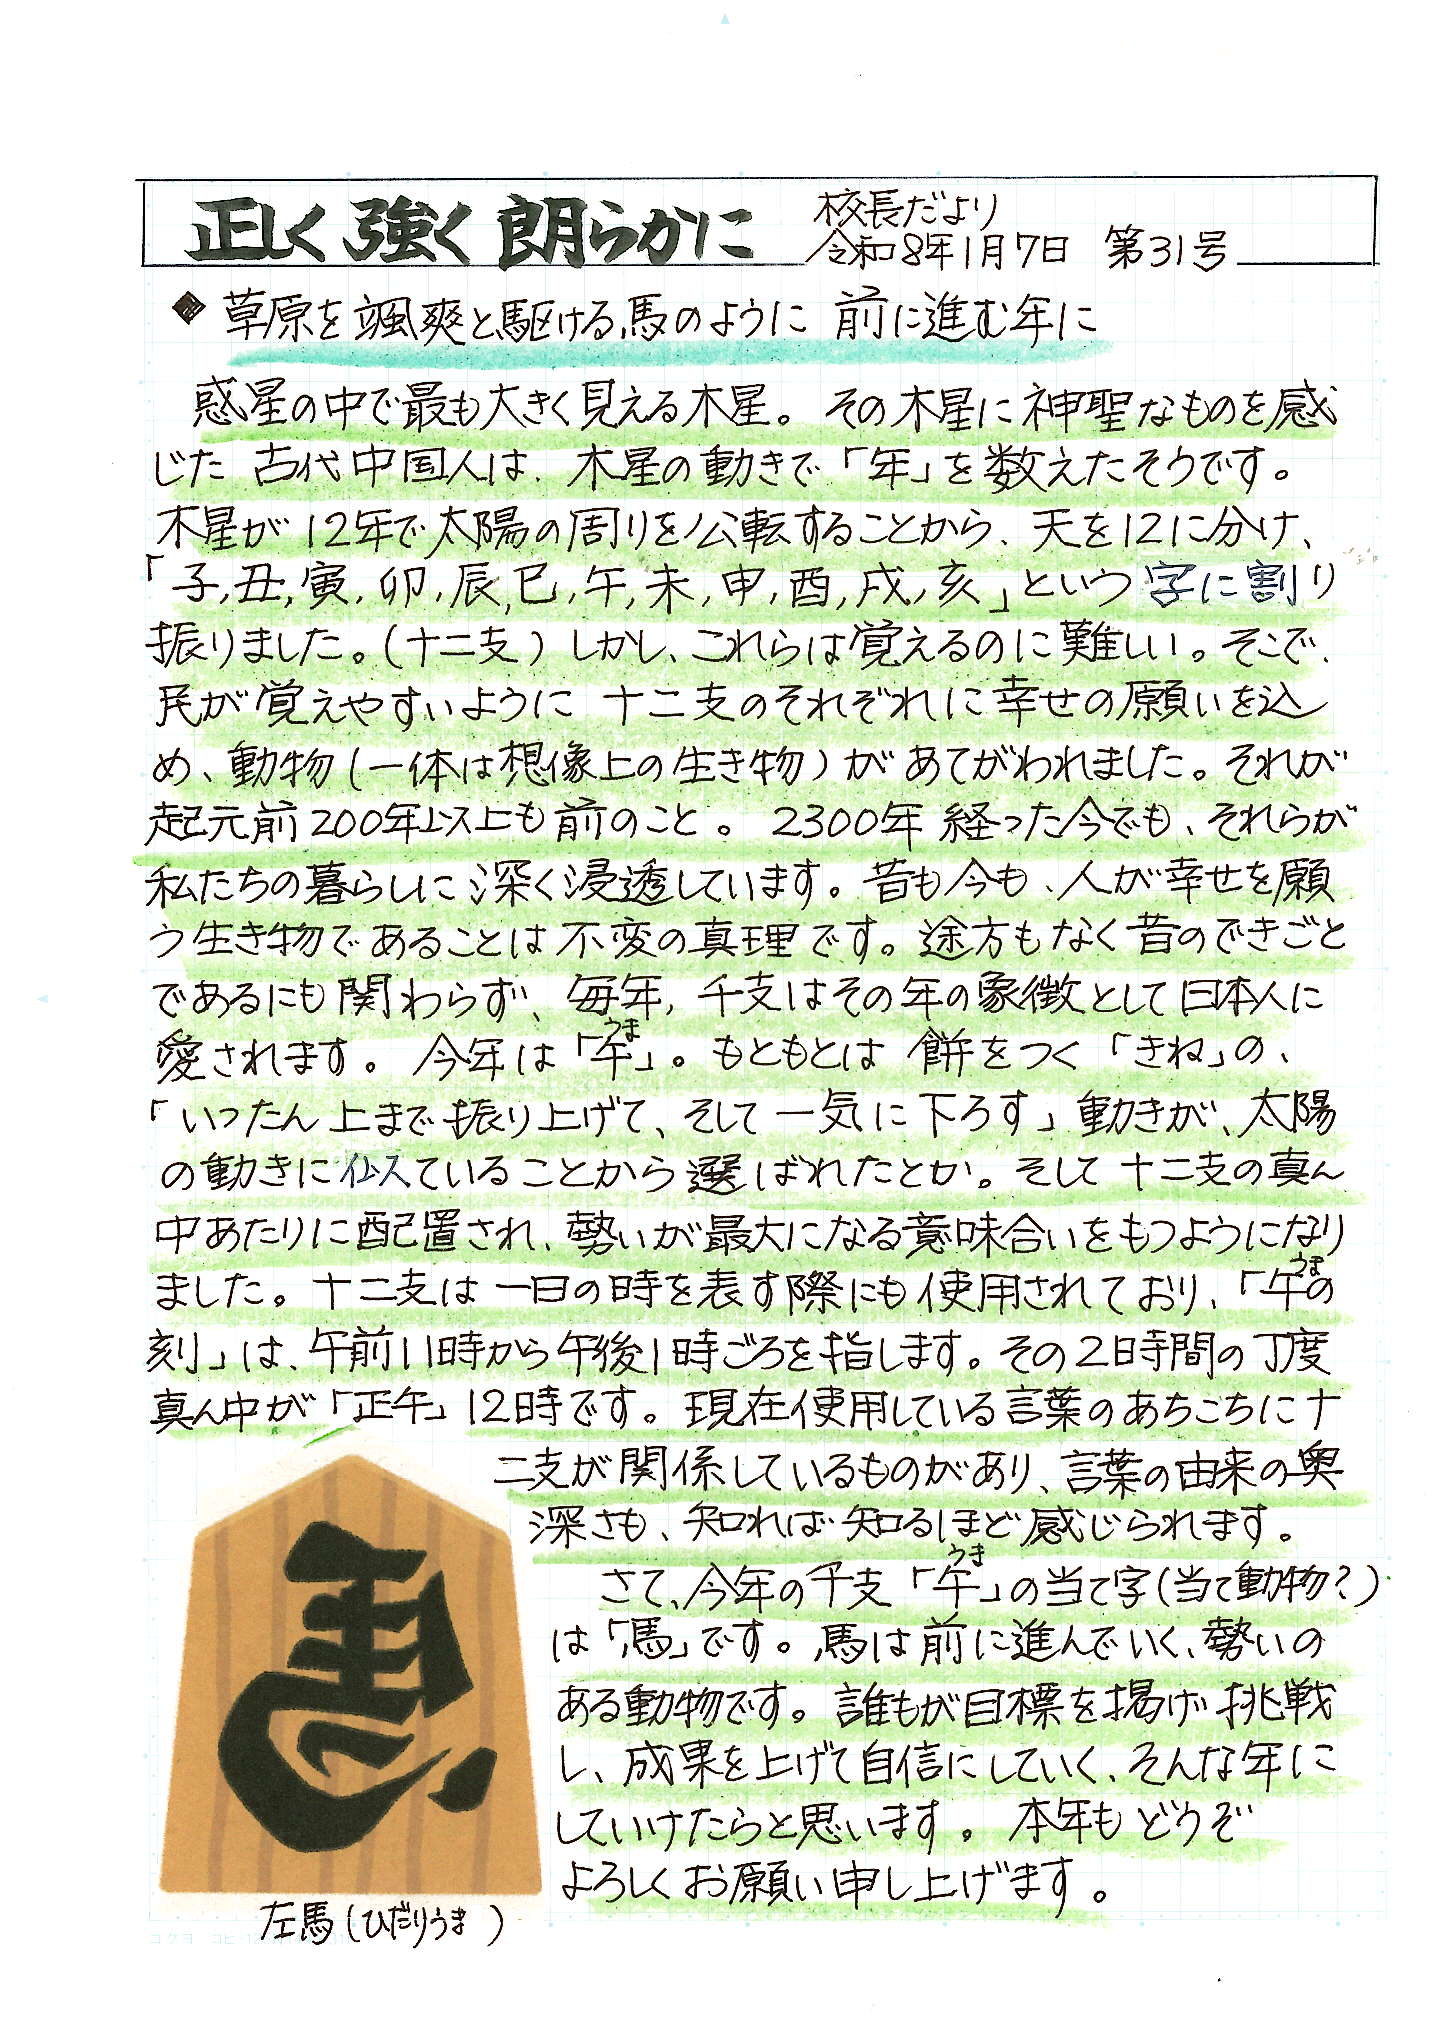 正しく 強く 朗らかに
校長だより
令和8年1月7日 第31号
◆ 草原を颯爽と駆ける馬のように 前に進む年に
惑星の中で最も大きく見える木星。その木星に神聖なものを感
じた 古代中国人は、木星の動きで「年」を数えたそうです。
木星が12年で太陽の周りを公転することから、天を12に分け、
「子,丑,寅,卯,辰,巳,午,未,申,酉,戌,亥」という字に割り
振りました。(十二支)しかし、これらは覚えるのに難しい。そこで、
民が覚えやすいように 十二支のそれぞれに幸せの願いを込
め、動物(一体は想像上の生き物)があてがわれました。それが
起元前200年以上も前のこと。2300年経った今でも、それらが
私たちの暮らしに深く浸透しています。昔も今も、人が幸せを願
う生き物であることは不変の真理です。途方もなく昔のできごと
であるにも関わらず、毎年,干支はその年の象徴として日本人に
愛されます。今年は「午」。もともとは 餅をつく「きね」の、
うま
「いったん上まで振り上げて、そして一気に下ろす」動きが、太陽
の動きに似ていることから選ばれたとか。そして十二支の真ん
中あたりに配置され、勢いが最大になる意味合いをもつようになり
ました。十二支は一日の時を表す際にも使用されており、「午の
うま
刻」は、午前11時から午後1時ごろを指します。その2時間の丁度
真ん中が「正午」12時です。現在使用している言葉のあちこちに十
二支が関係しているものがあり、言葉の由来の奥
深さも、知れば知るほど感じられます。
さて、今年の干支「午」の当て字(当て動物?)
うま
は「馬」です。馬は前に進んでいく、勢いの
ある動物です。誰もが目標を掲げ挑戦
し、成果を上げて自信にしていく、そんな年に
していけたらと思います。本年もどうぞ
よろしくお願い申し上げます。
馬
左馬(ひだりうま)